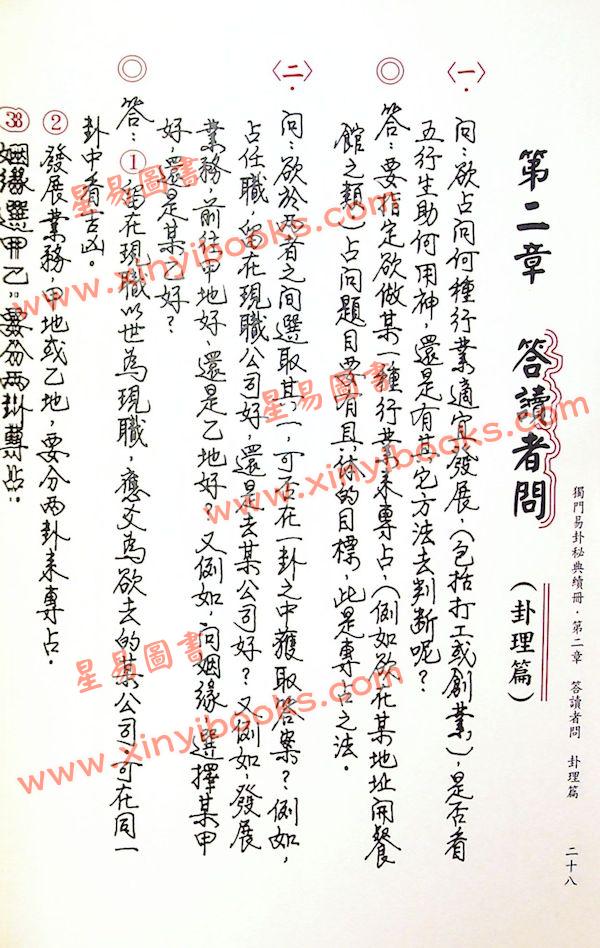 獨門易卦秘典續冊．第二章　答讀者問　卦理篇
二十八
第二章　答讀者問（卦理篇）
〈一．〉問：欲占问何種行業適宜發展，（包括打工或創業），是否看
五行生助何用神，還是有其它方法去判断呢？
◎答：要指定欲做某一種行業來專占，（例如欲在某地址開餐
館之類）占问題目要有具体的目標，此是專占之法。
〈二．〉问：欲於兩者之间選取其一，可否在一卦之中獲取答案？例如，
占任職，留在現職公司好，還是去某公司好？又例如，發展
業務，前往甲地好，還是乙地好？又例如，问姻緣，選擇某甲
好，還是某乙好？
◎答：①留在現職以世為現職，應爻為欲去的某公司可在同一
卦中看吉凶。
②發展業務，甲地或乙地，要分两卦来專占。
③姻緣選甲乙：要分两卦專占。
星易圖書
www.xinyibooks.com
星易圖書
www.xinyibooks.com
星易圖書
www.xinyibooks.com